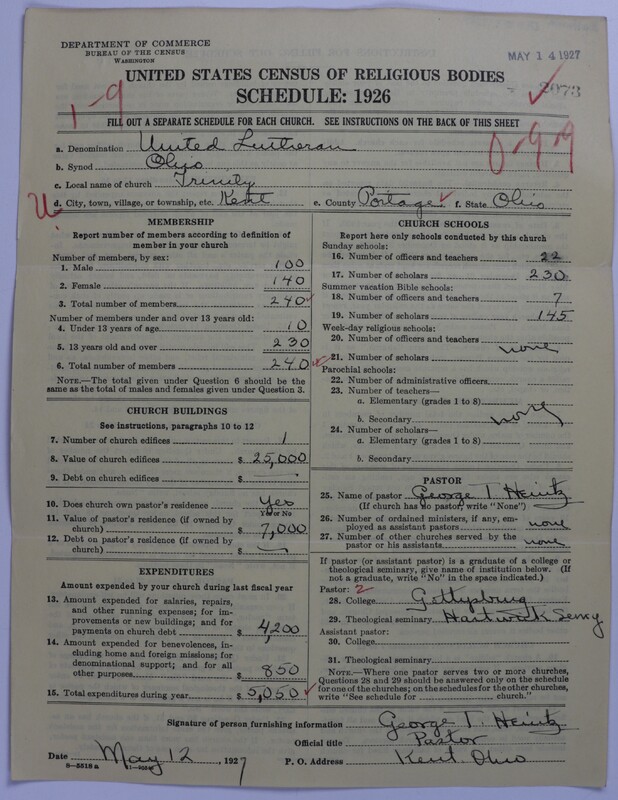 DEPARTMENT OF COMMERCE
BUREAU OF THE CENSUS
WASHINGTON
MAY 14 1927
UNITED STATES CENSUS OF RELIGIOUS BODIES
SCHEDULE: 1926
2973
1-9
FILL OUT A SEPARATE SCHEDULE FOR EACH CHURCH. SEE INSTRUCTIONS ON THE BACK OF THIS SHEET
0-9-9
a. Denomination United Lutheran
b. Synod Ohio
c. Local name of church Trinity
U. d. City, town, village, or township, etc. Kent e. County Portage f. State Ohio
MEMBERSHIP
Report number of members according to definition of
member in your church
Number of members, by sex:
1. Male 100
2. Female 140
3. Total number of members 240
Number of members under and over 13 years old:
4. Under 13 years of age 10
5. 13 years old and over 230
6. Total number of members 240
NOTE.—The total given under Question 6 should be the
same as the total of males and females given under Question 3.
CHURCH BUILDINGS
See instructions, paragraphs 10 to 12
7. Number of church edifices 1
8. Value of church edifices $ 25,000
9. Debt on church edifices $
10. Does church own pastor's residence Yes
Yes or No
11. Value of pastor's residence (if owned by
church) $ 7,000
12. Debt on pastor's residence (if owned by
church) $
EXPENDITURES
Amount expended by your church during last fiscal year
13. Amount expended for salaries, repairs,
and other running expenses; for im-
provements or new buildings; and for
payments on church debt $ 4,200
14. Amount expended for benevolences, in-
cluding home and foreign missions; for
denominational support; and for all
other purposes $ 850
15. Total expenditures during year $ 5,050
CHURCH SCHOOLS
Report here only schools conducted by this church
Sunday schools:
16. Number of officers and teachers 22
17. Number of scholars 230
Summer vacation Bible schools:
18. Number of officers and teachers 7
19. Number of scholars 145
Week-day religious schools:
20. Number of officers and teachers
none
21. Number of scholars
Parochial schools:
22. Number of administrative officers
23. Number of teachers—
a. Elementary (grades 1 to 8)
b. Secondary none
24. Number of scholars—
a. Elementary (grades 1 to 8)
b. Secondary
PASTOR
25. Name of pastor George T. Heintz
(If church has no pastor, write "None")
26. Number of ordained ministers, if any, em-
ployed as assistant pastors none
27. Number of other churches served by the
pastor or his assistants none
If pastor (or assistant pastor) is a graduate of a college or
theological seminary, give name of institution below. (If
not a graduate, write "No" in the space indicated.)
Pastor: 2
28. College Gettysburg
29. Theological seminary Hartwick Semry
Assistant pastor:
30. College
31. Theological seminary
NOTE.—Where one pastor serves two or more churches,
Questions 28 and 29 should be answered only on the schedule
for one of the churches; on the schedules for the other churches,
write "See schedule for church."
Signature of person furnishing information George T. Heintz
Official title Pastor
Date May 12, 1927 P. O. Address Kent Ohio
8-5518 a